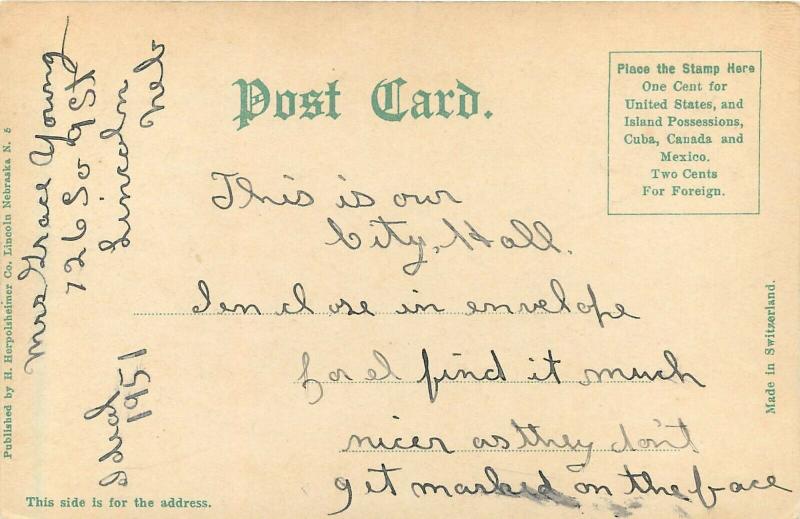 Post Card.
Place the Stamp Here
One Cent for
United States, and
Island Possessions,
Cuba, Canada and
Mexico.
Two Cents
For Foreign.
This is our
City, Hall.
I en close in envelope
for I find it much
nicer as they don't
get marked on the face
Mrs Grace Young
726 So 9 St
Lincoln
Neb
1951
Published by H. Herpolsheimer Co. Lincoln Nebraska N. 5
This side is for the address.
Made in Switzerland.